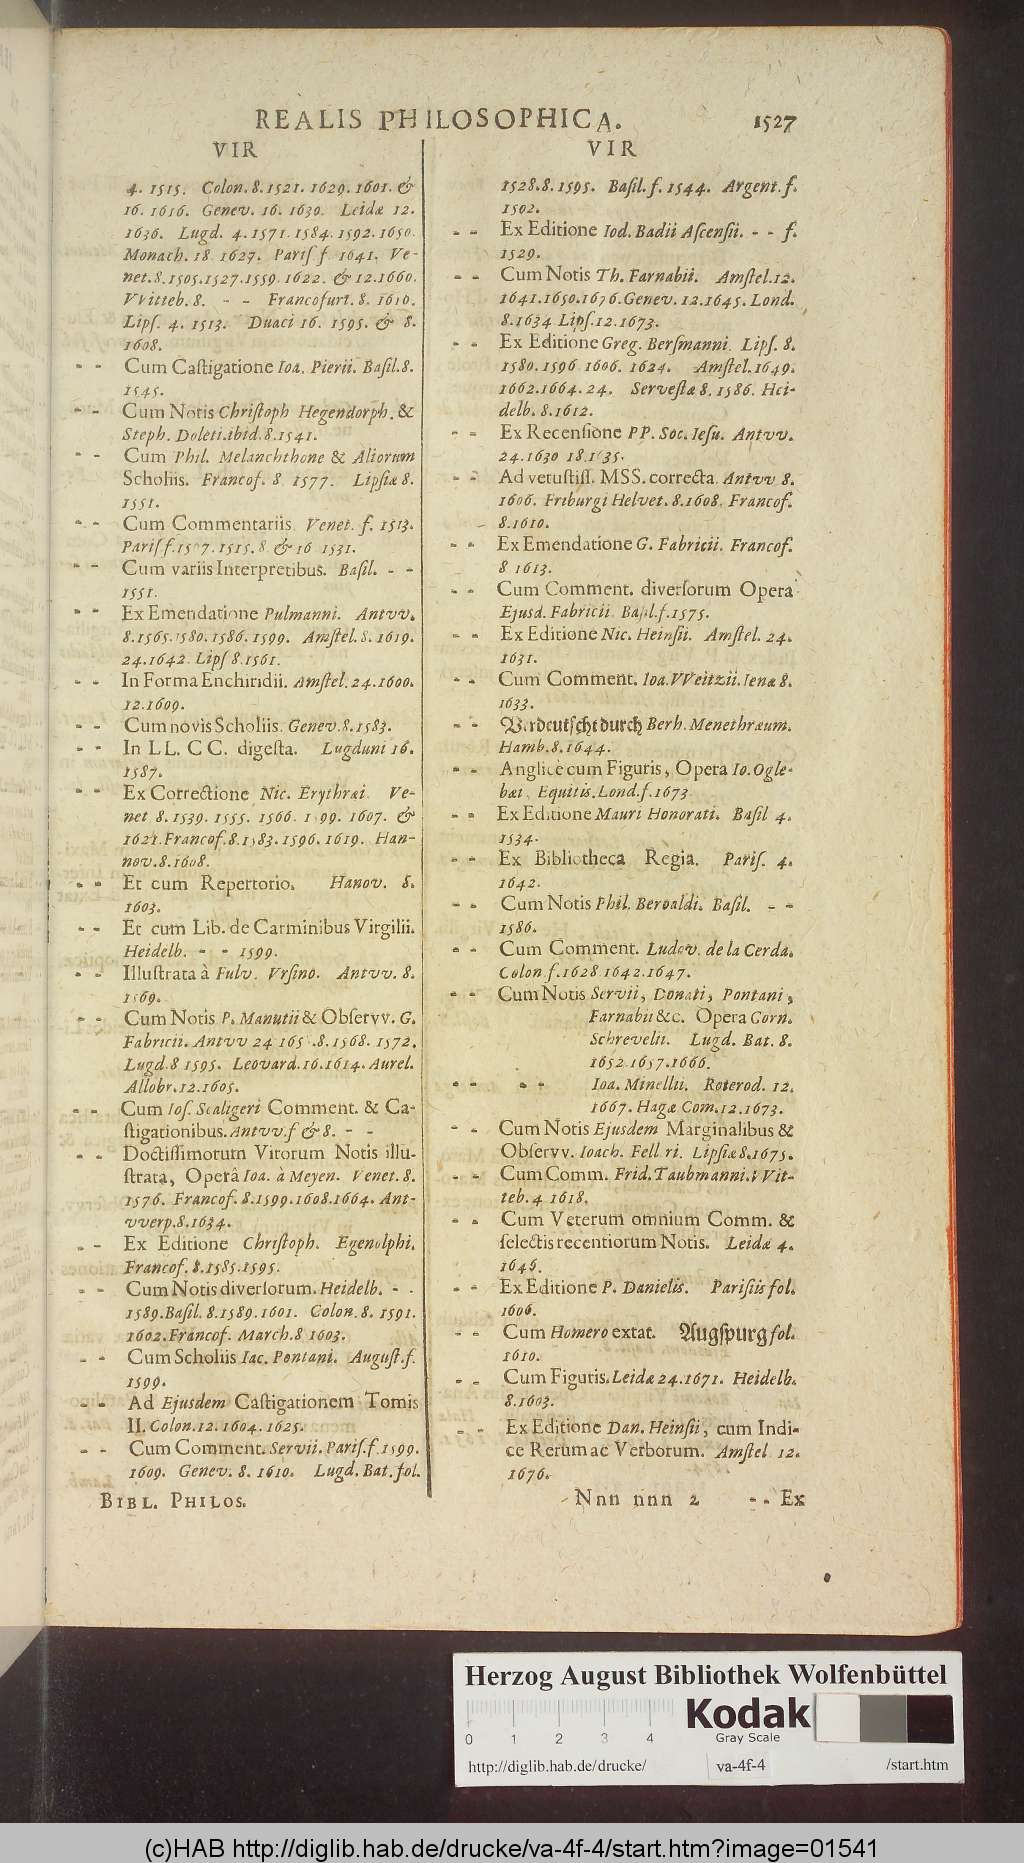 REALIS PHILOSOPHICA. 1527
VIR
4. 1515. Colon. 8. 1521. 1629. 1601. &
16. 1616. Genev. 16. 1630. Leidæ 12.
1636. Lugd. 4. 1571. 1584. 1592. 1650.
Monach. 18. 1627. Pariſ f. 1641. Ve-
net. 8. 1505. 1527. 1559. 1622. & 12. 1660.
VVitteb. 8. - - Francofurt. 8. 1610.
Lipſ. 4. 1513. Duaci 16. 1595. & 8.
1608.
- - Cum Caſtigatione Ioa. Pierii. Baſil. 8.
1545.
- - Cum Notis Chriſtoph Hegendorph. &
Steph. Doleti. ibid. 8. 1541.
- - Cum Phil. Melanchthone & Aliorum
Scholiis. Francof. 8. 1577. Lipſiæ 8.
1551.
- - Cum Commentariis. Venet. f. 1513.
Pariſ f. 1507. 1515. 8. & 16 1531.
- - Cum variis Interpretibus. Baſil. - -
1551.
- - Ex Emendatione Pulmanni. Antvv.
8. 1565. 1580. 1586. 1599. Amſtel. 8. 1619.
24. 1642. Lipſ 8. 1561.
- - In Forma Enchiridii. Amſtel. 24. 1600.
12. 1609.
- - Cum novis Scholiis. Genev. 8. 1583.
- - In LL. CC. digeſta. Lugduni 16.
1587.
- - Ex Correctione Nic. Erythræi. Ve-
net 8. 1539. 1555. 1566. 1 99. 1607. &
1621. Francof. 8. 1583. 1596. 1619. Han-
nov. 8. 1608.
- - Et cum Repertorio. Hanov. 8.
1603.
- - Et cum Lib. de Carminibus Virgilii.
Heidelb. - - 1599.
- - Illuſtrata à Fulv. Vrſino. Antvv. 8.
1569.
- - Cum Notis P. Manutii & Obſervv. G.
Fabricii. Antvv 24 165 . 8. 1568. 1572.
Lugd. 8 1595. Leovard. 16. 1614. Aurel.
Allobr. 12. 1605.
- - Cum Ioſ. Scaligeri Comment. & Ca-
ſtigationibus. Antvv. f & 8. - -
- - Doctiſſimorum Virorum Notis illu-
ſtrata, Operâ Ioa. à Meyen. Venet. 8.
1576. Francof. 8. 1599. 1608. 1664. Ant-
vverp. 8. 1634.
- - Ex Editione Chriſtoph. Egenolphi.
Francof. 8. 1585. 1595.
- - Cum Notis diverſorum. Heidelb. - -
1589. Baſil. 8. 1589. 1601. Colon. 8. 1591.
1602. Francof. March. 8 1603.
- - Cum Scholiis Iac. Pontani. Auguſt. f.
1599.
- - Ad Ejusdem Caſtigationem Tomis
II. Colon. 12. 1604. 1625.
- - Cum Comment. Servii. Pariſ. f. 1599.
1609. Genev. 8. 1610. Lugd. Bat. fol.
BIBL. PHILOS.
VIR
1528. 8. 1595. Baſil. f. 1544. Argent. f.
1502.
- - Ex Editione Iod. Badii Aſcenſii. - - f.
1529.
- - Cum Notis Th. Farnabii. Amſtel. 12.
1641. 1650. 1676. Genev. 12. 1645. Lond.
8. 1634 Lipſ. 12. 1673.
- - Ex Editione Greg. Berſmanni. Lipſ. 8.
1580. 1596 1606. 1624. Amſtel. 1649.
1662. 1664. 24. Serveſtæ 8. 1586. Hei-
delb. 8. 1612.
- - Ex Recenſione PP. Soc. Ieſu. Antvv.
24. 1630 18. 1635.
- - Ad vetuſtiſſ. MSS. correcta. Antvv. 8.
1606. Friburgi Helvet. 8. 1608. Francof.
8. 1610.
- - Ex Emendatione G. Fabricii. Francof.
8 1613.
- - Cum Comment. diverſorum Opera
Ejusd. Fabricii. Baſil. f. 1575.
- - Ex Editione Nic. Heinſii. Amſtel. 24.
1631.
- - Cum Comment. Ioa. VVeitzii. Ienæ 8.
1633.
- - Verdeutſcht durch Berh. Menethræum.
Hamb. 8. 1644.
- - Anglicè cum Figuris, Opera Io. Ogle-
bæi. Equitis. Lond. f. 1673
- - Ex Editione Mauri Honorati. Baſil 4.
1534.
- - Ex Bibliotheca Regia. Pariſ. 4.
1642.
- - Cum Notis Phil. Beroaldi. Baſil. - -
1586.
- - Cum Comment. Ludov. de la Cerda.
Colon. f. 1628 1642. 1647.
- - Cum Notis Servii, Donati, Pontani,
Farnabii &c. Opera Corn.
Schrevelii. Lugd. Bat. 8.
1652 1657. 1666.
- - - - Ioa. Minellii. Roterod. 12.
1667. Hagæ Com. 12. 1673.
- - Cum Notis Ejusdem Marginalibus &
Obſervv. Ioach. Felleri. Lipſiæ 8. 1675.
- - Cum Comm. Frid. Taubmanni. VVit-
teb. 4 1618.
- - Cum Veterum omnium Comm. &
ſelectis recentiorum Notis. Leidæ 4.
1646.
- - Ex Editione P. Danielis. Pariſiis fol.
1606.
- - Cum Homero extat. Augſpurg fol.
1610.
- - Cum Figuris. Leidæ 24. 1671. Heidelb.
8. 1603.
- - Ex Editione Dan. Heinſii, cum Indi-
ce Rerum ac Verborum. Amſtel 12.
1676.
Nnn nnn 2 - - Ex
Herzog August Bibliothek Wolfenbüttel
0 1 2 3 4
Kodak
Gray Scale
http://diglib.hab.de/drucke/ va-4f-4 /start.htm
(c)HAB http://diglib.hab.de/drucke/va-4f-4/start.htm?image=01541